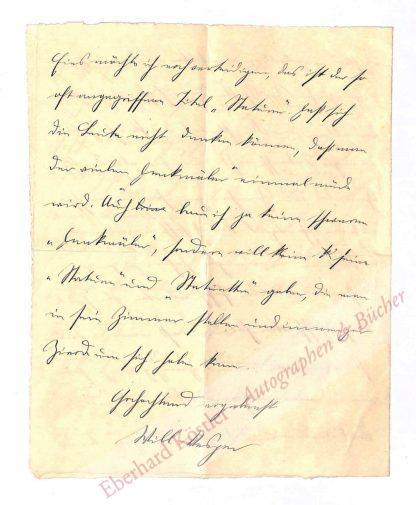 Eins möchte ich noch verteidigen, das ist der so
oft angegriffene Titel „Statuen". Daß sich
die Leute nicht denken können, daß man
der vielen „Denkmäler" einmal müde
wird. Auch baue ich ja keine schweren
„Denkmäler", sondern will kleine feine
„Statuen" und „Statuetten" geben, die man
in sein Zimmer stellen und immer zur
Zierde um sich haben kann.
Hochachtend ergebenst
Will Vesper
Eberhard Köstler Autographen & Bücher